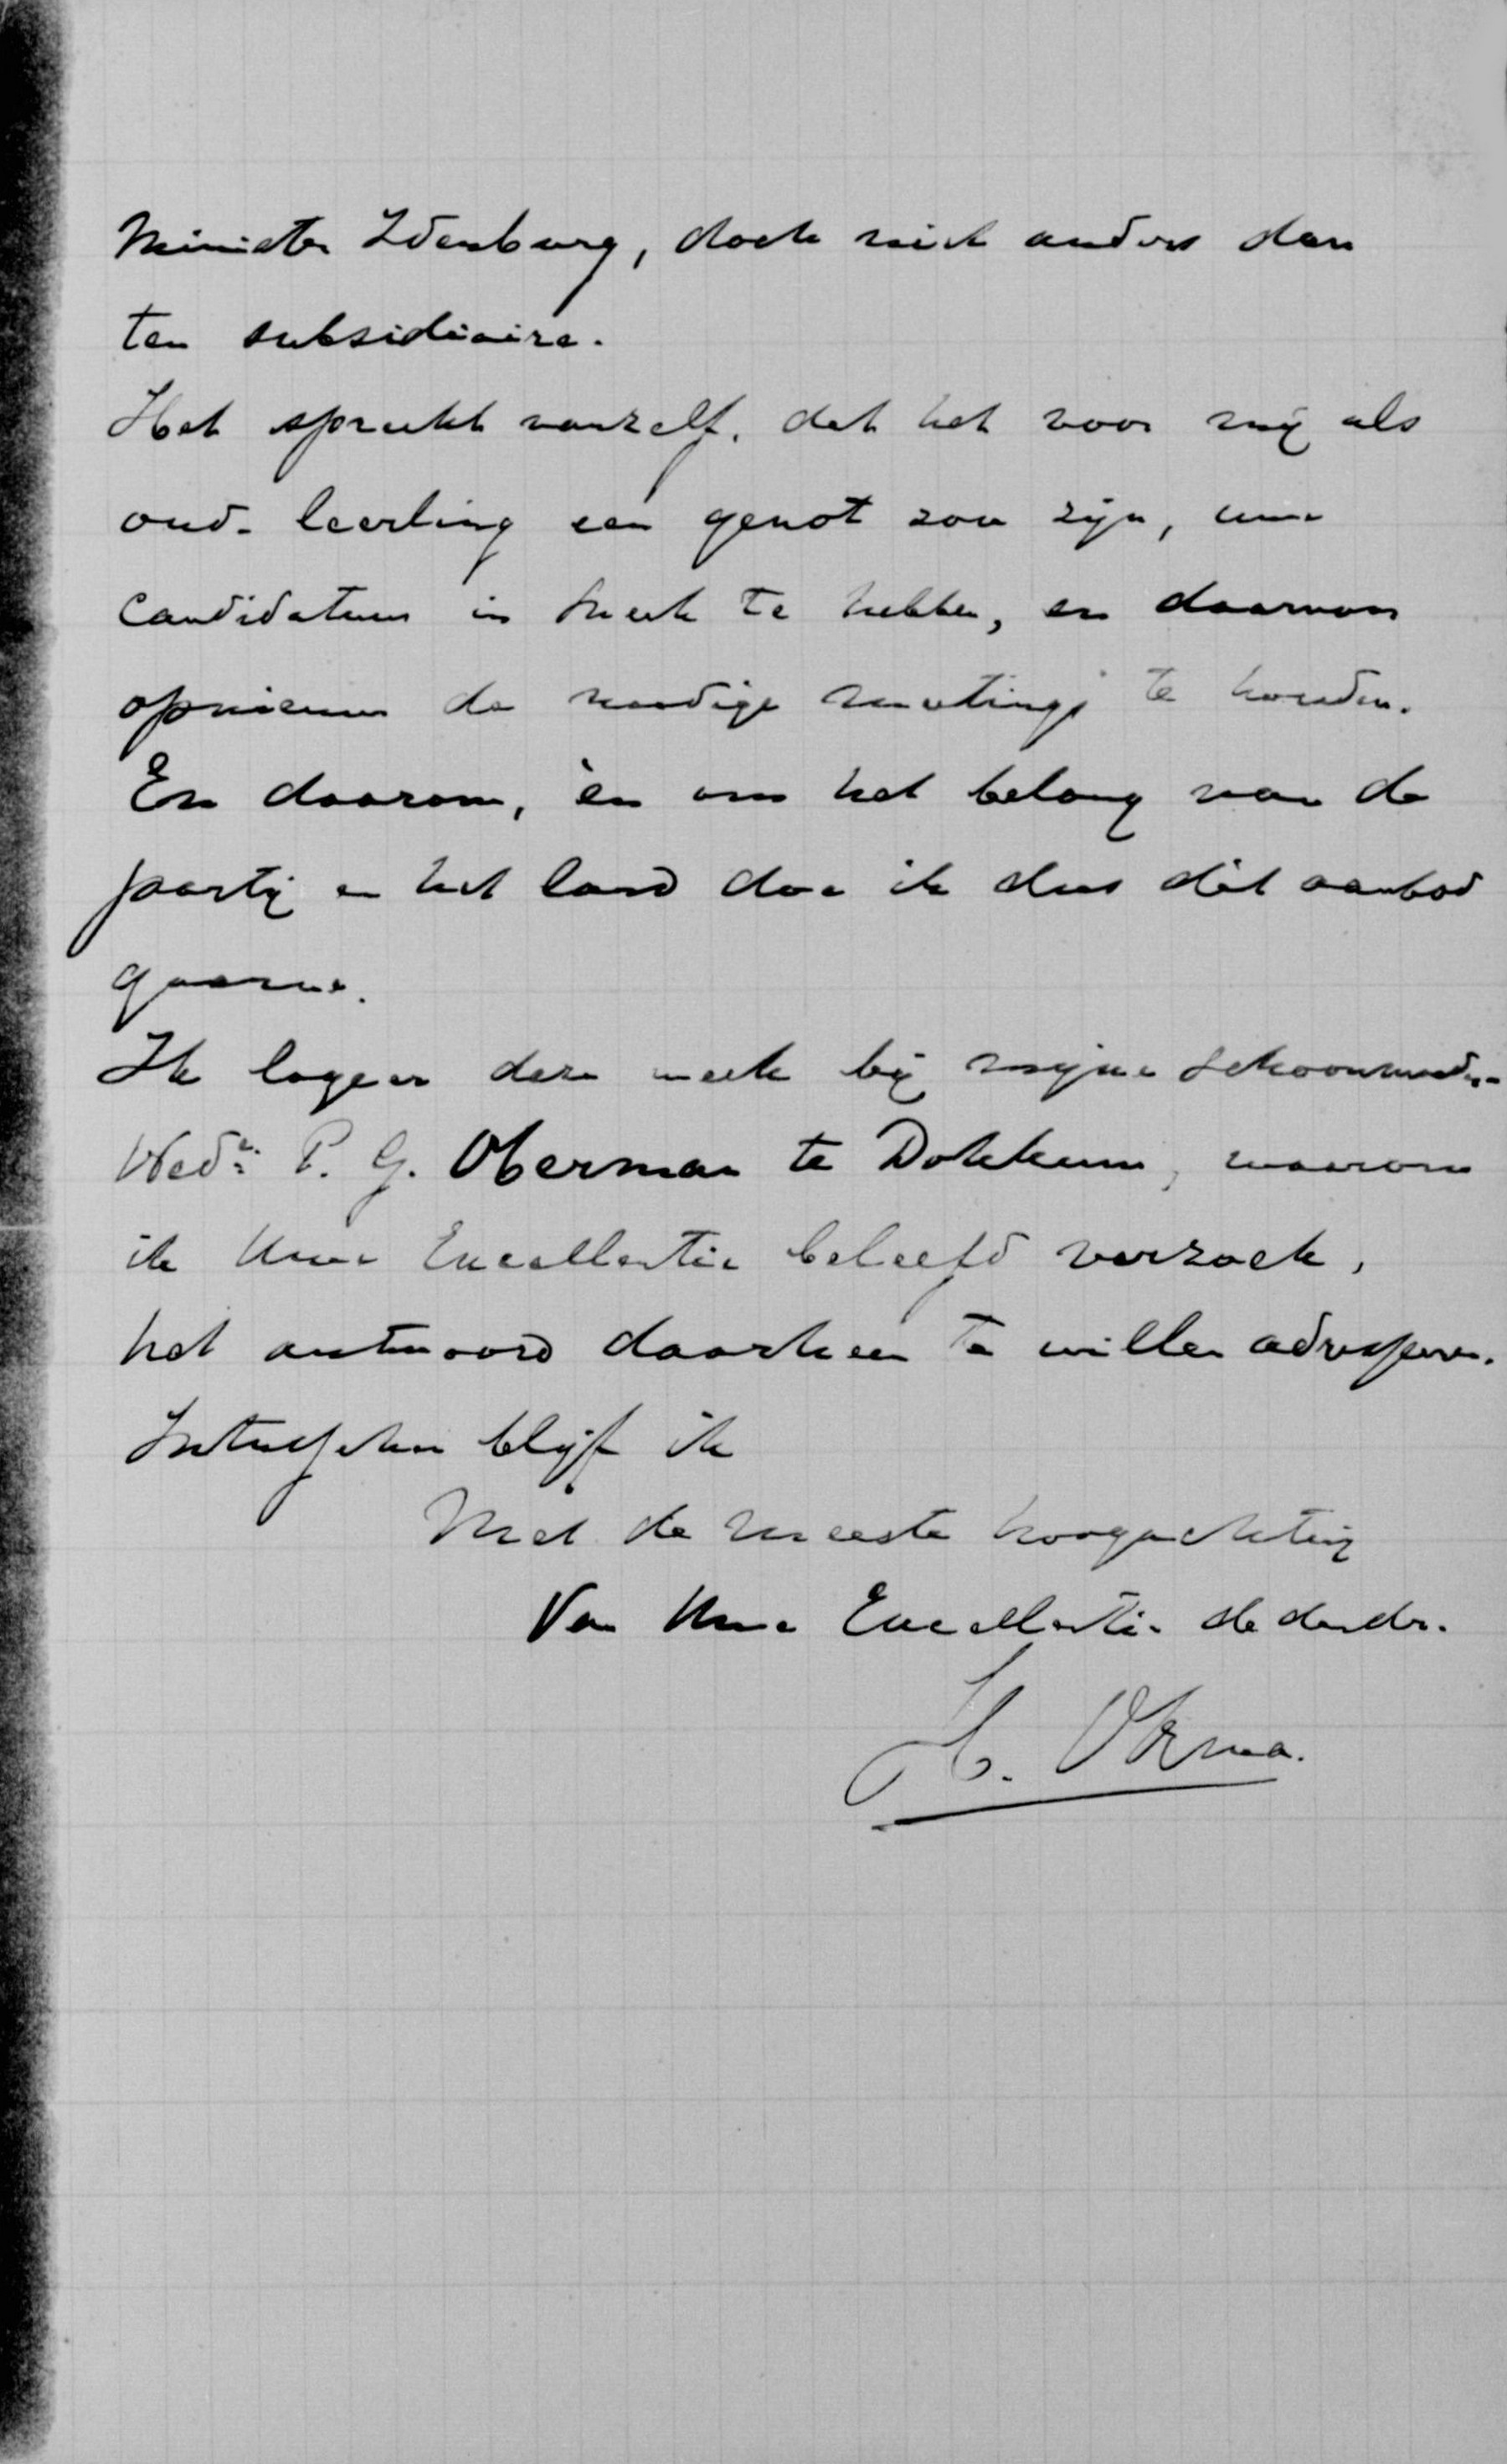 Minister Idenburg, doch niet anders dan
ten subsidiaire.
Het spreekt vanzelf, dat het voor mij als
oud-leerling een genot zou zijn, uw
candidatuur in Sneek te hebben, en daarvoor
opnieuw de noodige meetings te houden.
En daarom, èn om het belang van de
partij en het land doe ik dus dit aanbod
gaarne.
Ik logeer deze week bij mijne schoonmoeder
Wede P. G. Oberman te Dokkum, waarom
ik Uwe Excellentie beleefd verzoek,
het antwoord daarheen te willen adresseren.
Intusschen blijf ik
Met de meeste hoogachting
Van Uwe Excellentie de dwdr.